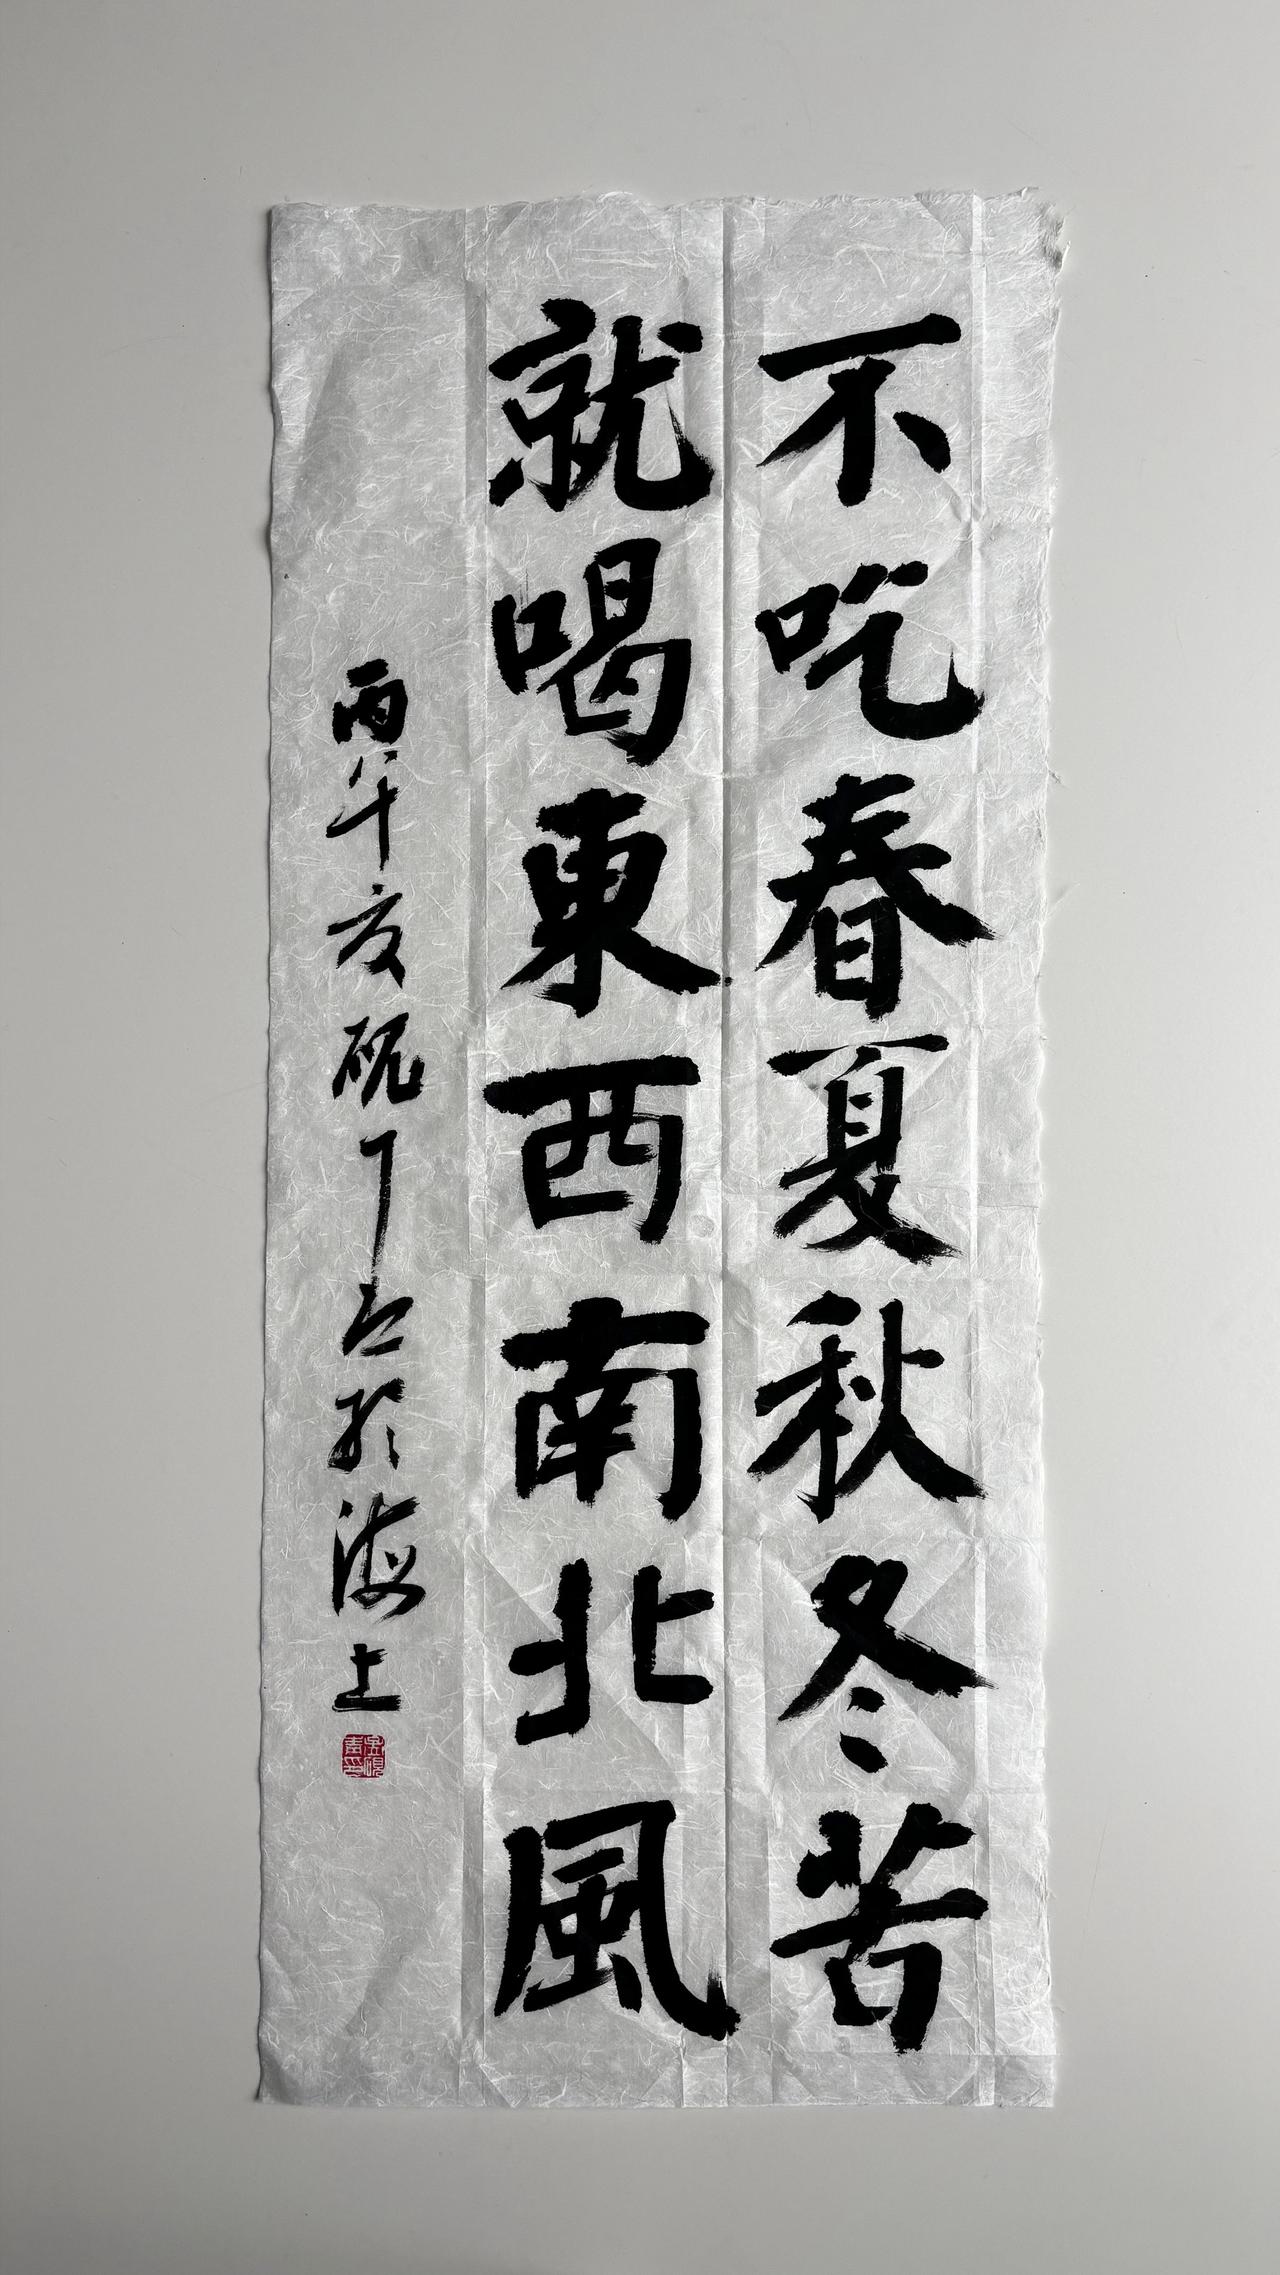 不吃春夏秋冬苦
就喝東西南北風
丙午夏硯丁書於海上